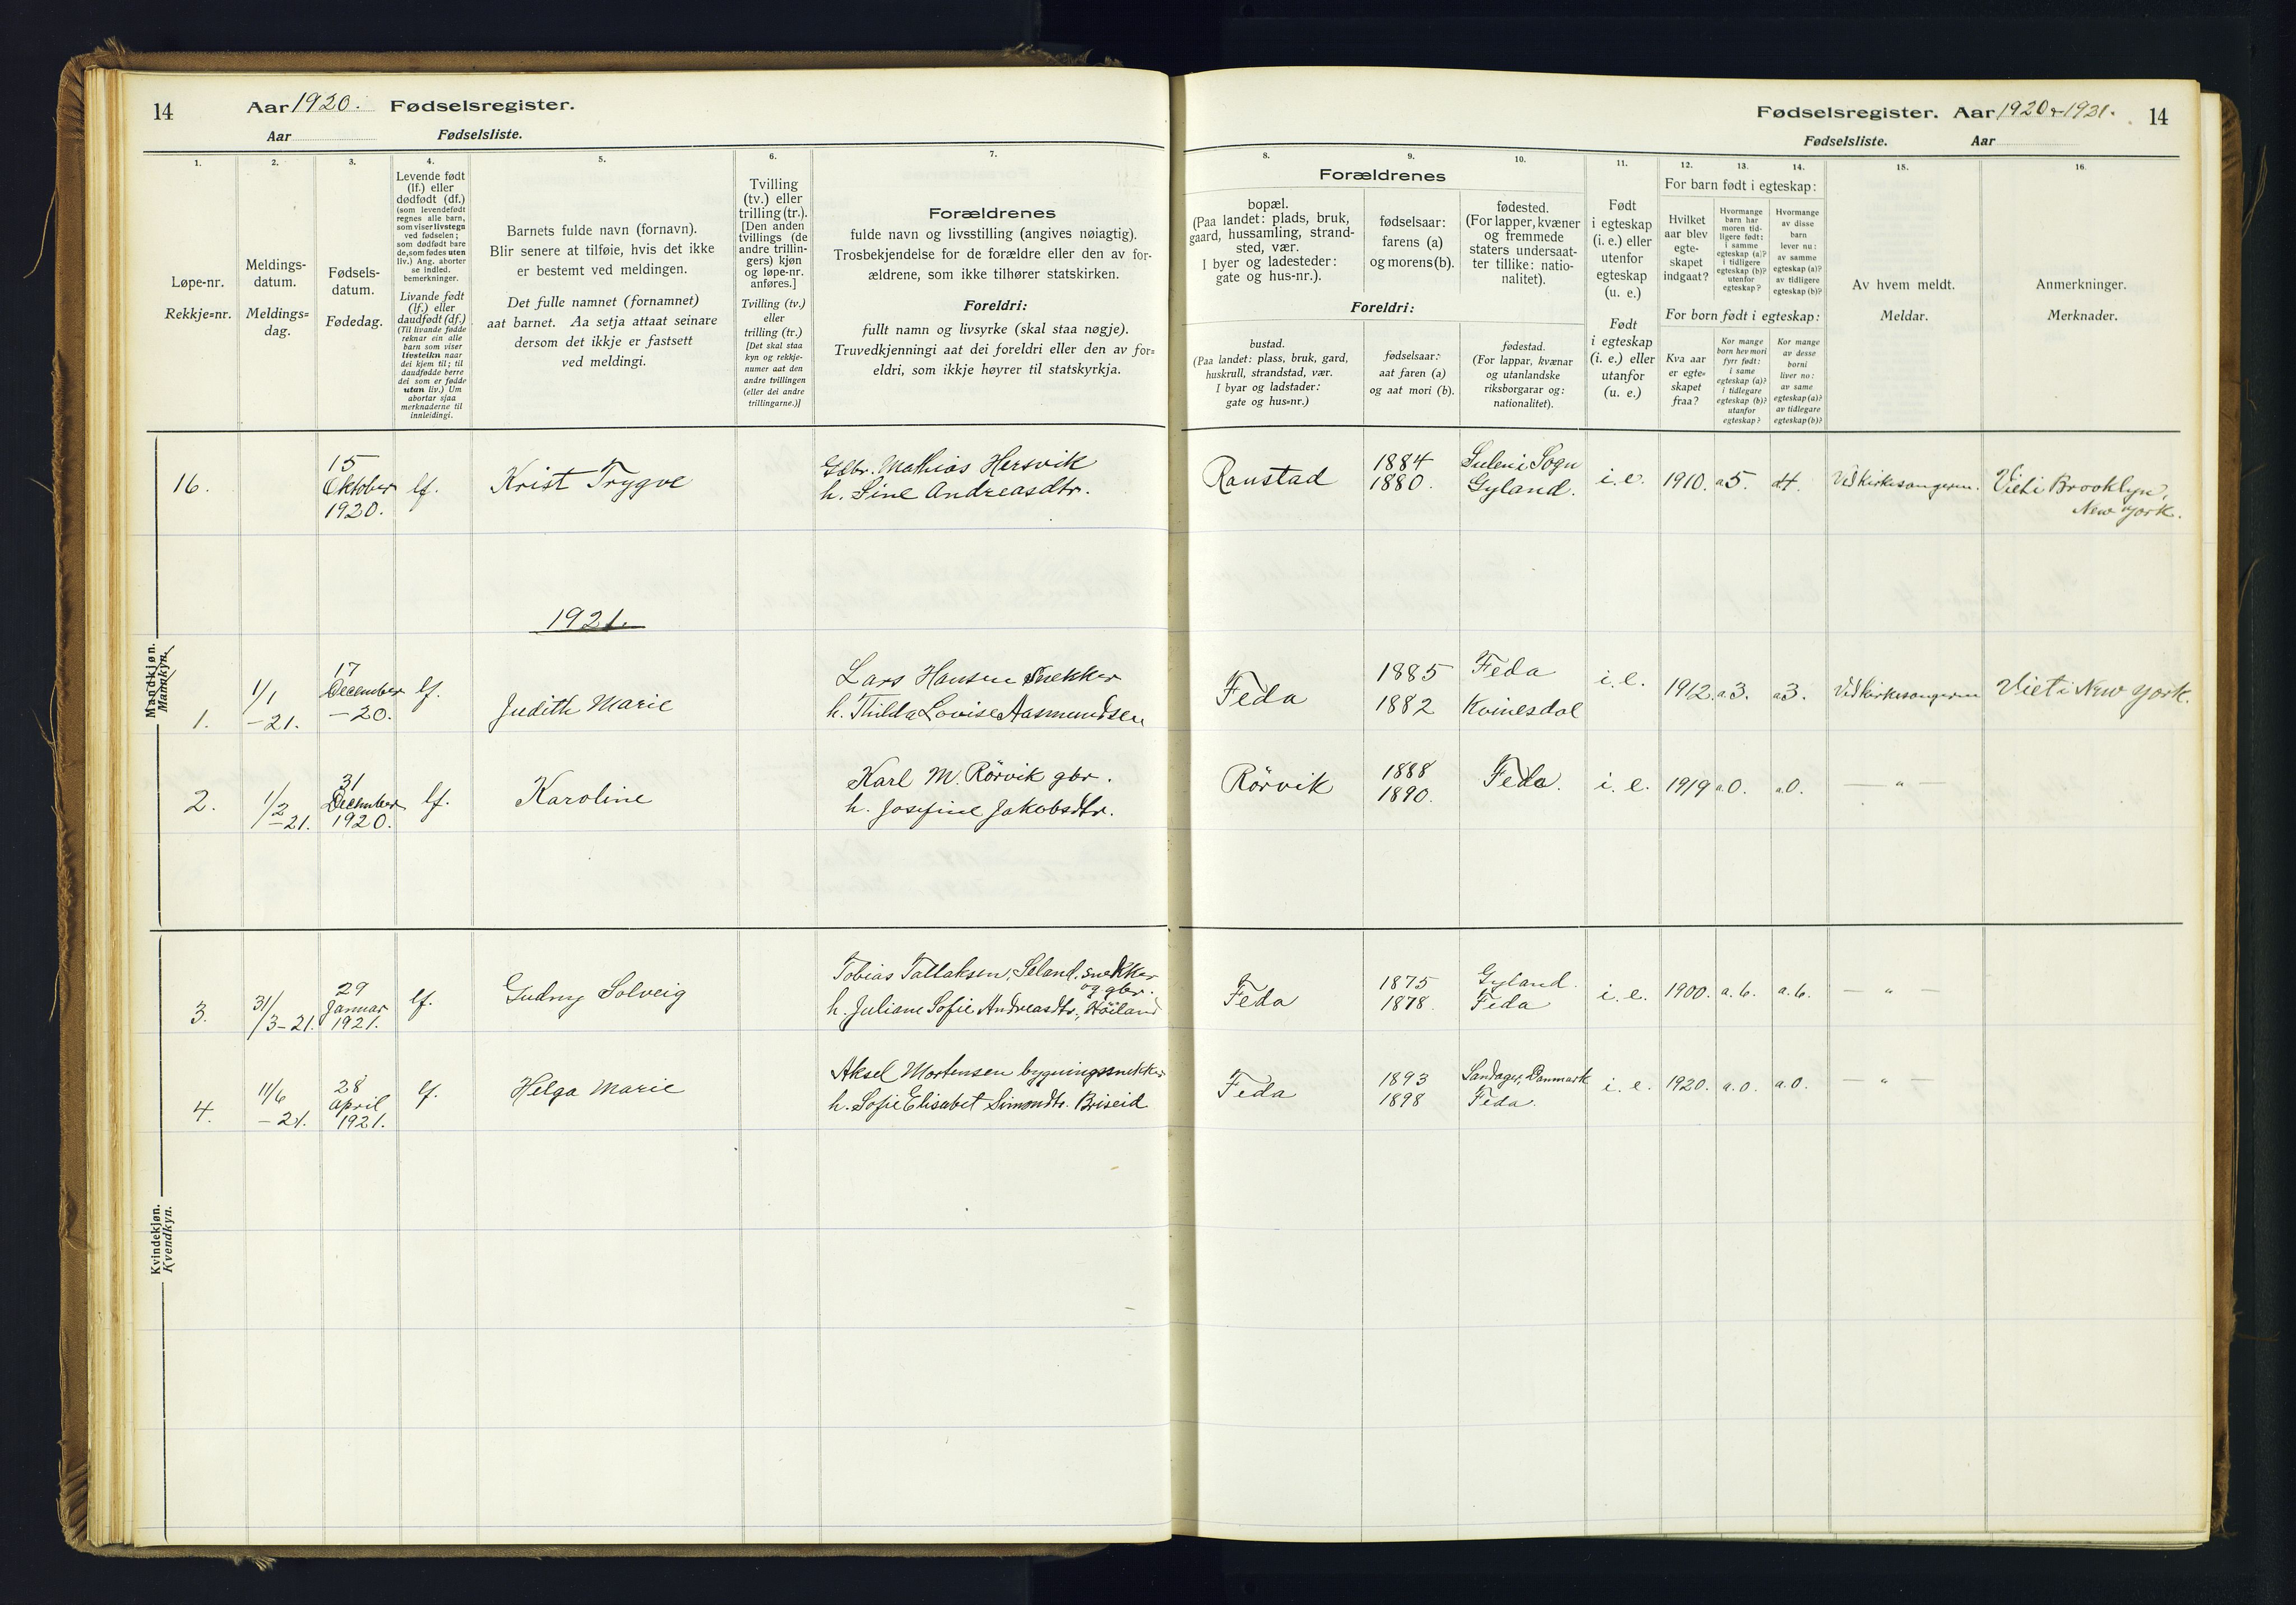 14 Aar 1920. Fødselsregister.
Aar Fødselsliste.
Fødselsregister. Aar 1920 & 1921. 14
Fødselsliste. Aar
1.
Løpe-nr.
Rekkje=nr.
2.
Meldings-
datum.
Meldings=
dag.
3.
Fødsels-
datum.
Fødedag.
4.
Levende født
(lf.) eller
dødfødt (df.)
(som levendefødt
regnes alle barn,
som viser livstegn
ved fødselen;
som dødfødt bare
de, som fødes uten
liv.) Ang. aborter
se indled.
bemerkninger.
Livande født
(lf.) eller
daudfødt (df.)
(Til livande fødde
reknar ein alle
barn som viser
livsteikn naar
dei kjem til; til
daudfødde berre
dei som er fødde
utan liv.) Um
abortar sjaa
merknaderne til
innleidingi.
5.
Barnets fulde navn (fornavn).
Blir senere at tilføie, hvis det ikke
er bestemt ved meldingen.
Det fulle namnet (fornamnet)
aat barnet. Aa setja attaat seinare
dersom det ikkje er fastsett
ved meldingi.
6.
Tvilling
(tv.) eller
trilling (tr.).
[Den anden
tvillings (de
andre trillin-
gers) kjøn
og løpe-nr.
anføres.]
Tvilling (tv.)
eller
trilling (tr.)
[Det skal staa
kyn og rekkje-
numer aat den
andre tvillingen
(eller dei andre
trillingarne.)]
7.
Forældrenes
fulde navn og livsstilling (angives nøiagtig).
Trosbekjendelse for de forældre eller den av for-
ældrene, som ikke tilhører statskirken.
Foreldri:
fullt namn og livsyrke (skal staa nøgje).
Truvedkjenningi aat dei foreldri eller den av for=
eldri, som ikkje høyrer til statskyrkja.
Forældrenes
8.
bopæl.
(Paa landet: plads, bruk,
gaard, hussamling, strand-
sted, vær.
I byer og ladesteder:
gate og hus-nr.).
9.
fødselsaar:
farens (a)
og morens (b).
10.
fødested.
(For lapper, kvæner
og fremmede
staters undersaat-
ter tillike: natio-
nalitet).
Foreldri:
bustad.
(Paa landet: plass, bruk, gard,
huskrull, strandstad, vær.
I byar og ladstader:
gate og hus=nr.)
fødselsaar:
aat faren (a)
og aat mori (b).
fødestad.
(For lappar, kvænar
og utanlandske
riksborgarar og:
nationalitet).
11.
Født
i egteskap
(i. e.) eller
utenfor
egteskap
(u. e.)
Født
i egteskap
(i. e.) eller
utanfor
(u. e.)
12. 13. 14.
For barn født i egteskap:
Hvilket
aar blev
egte-
skapet
indgaat?
Hvormange
barn har
moren tid-
ligere født:
i samme
egteskap (a)?
i tidligere
egteskap (b)?
utenfor
egteskap?
Hvormange
av disse
barn
lever nu:
av samme
egteskap (a)?
av tidligere
egteskap (b)?
For born født i egteskap:
Kva aar
er egte=
skapet
fraa?
Kor mange
born hev mori
fyrr født:
i same
egteskap (a)?
i tidlegare
egteskap (b)?
utanfor
egteskap?
Kor mange
av desse
borni
liver no:
av same
egteskap (a)?
av tidlegare
egteskap (b)?
15.
Av hvem meldt.
Meldar.
16.
Anmerkninger.
Merknader.
Mandkjøn.
Mannkyn.
16. 15 Oktober 1920. lf. Krist Trygve
Gbr. Mathias Hersvik
h. Sine Andreasdtr.
Ranstad 1884 1880. Sulen i Sogn Gyland. i. e. 1910. a5. a4. Ved kirkesangeren. Viet i Brooklyn, New York.
1921.
1. 1/1 -21. 17 December -20. lf. Judith Marie
Lars Hansen Snekker
h. Thilda Lovise Aasmundsen
Feda 1885 1882 Feda Kvinesdal i. e. 1912. a.3. a3. Ved kirkesangeren Viet i New York.
2. 1/2 -21. 31 December 1920. lf. Karoline
Karl M. Rörvik gbr.
h. Josefine Jakobsdtr.
Rörvik 1888 1890. Feda. i. e. 1919 a.0. a.0. — " —
3. 31/3-21. 29 Januar 1921. lf. Gudny Solveig
Tobias Tallaksen, Seland, snekker
og gbr.
h. Juliane Sofie Andreasdtr., Höiland
Feda 1875 1878. Gyland. Feda i. e. 1900. a. 6. a. 6. — " —
4. 11/6 -21. 28 april 1921. lf. Helga Marie
Aksel Mortensen bygningssnekker
h. Sofie Elisabet Simondtr. Briseid
Feda 1893 1898 Sandager, Danmark Feda. i. e. 1920. a. 0. a. 0. — " —
Kvindekjøn.
Kvendkyn.